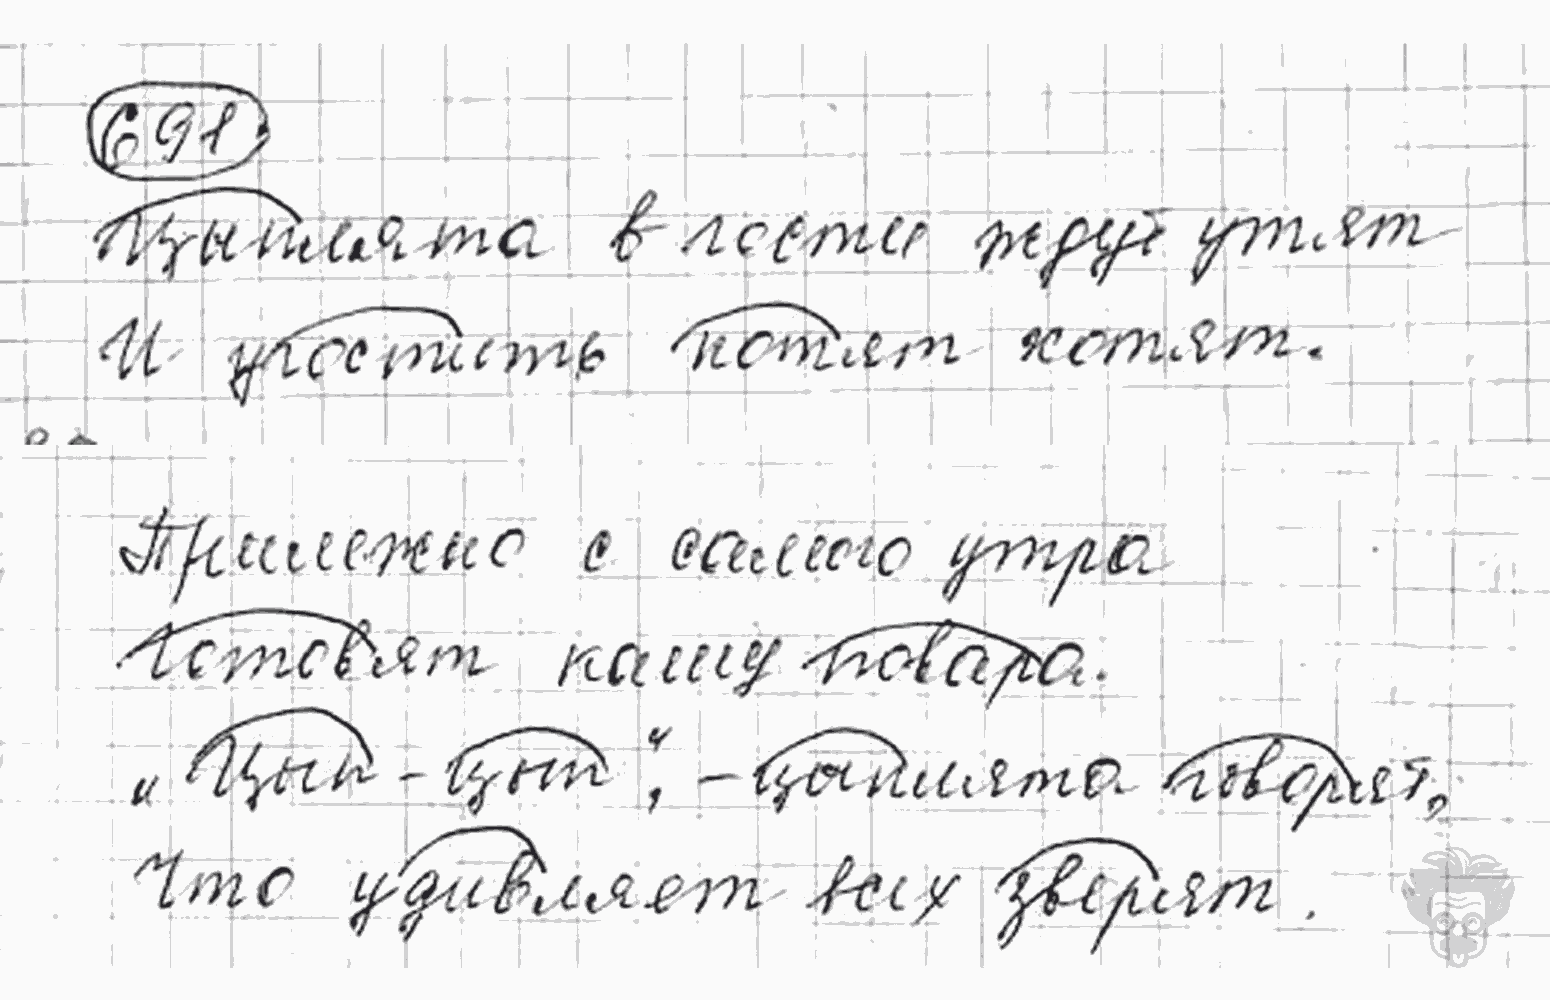 691.
Цыплята в гости ждут утят
И угостить котят хотят.
Прилежно с самого утра
Готовят кашу повара.
„Цып-цып“, – цыплята говорят,
Что удивляет всех зверят.